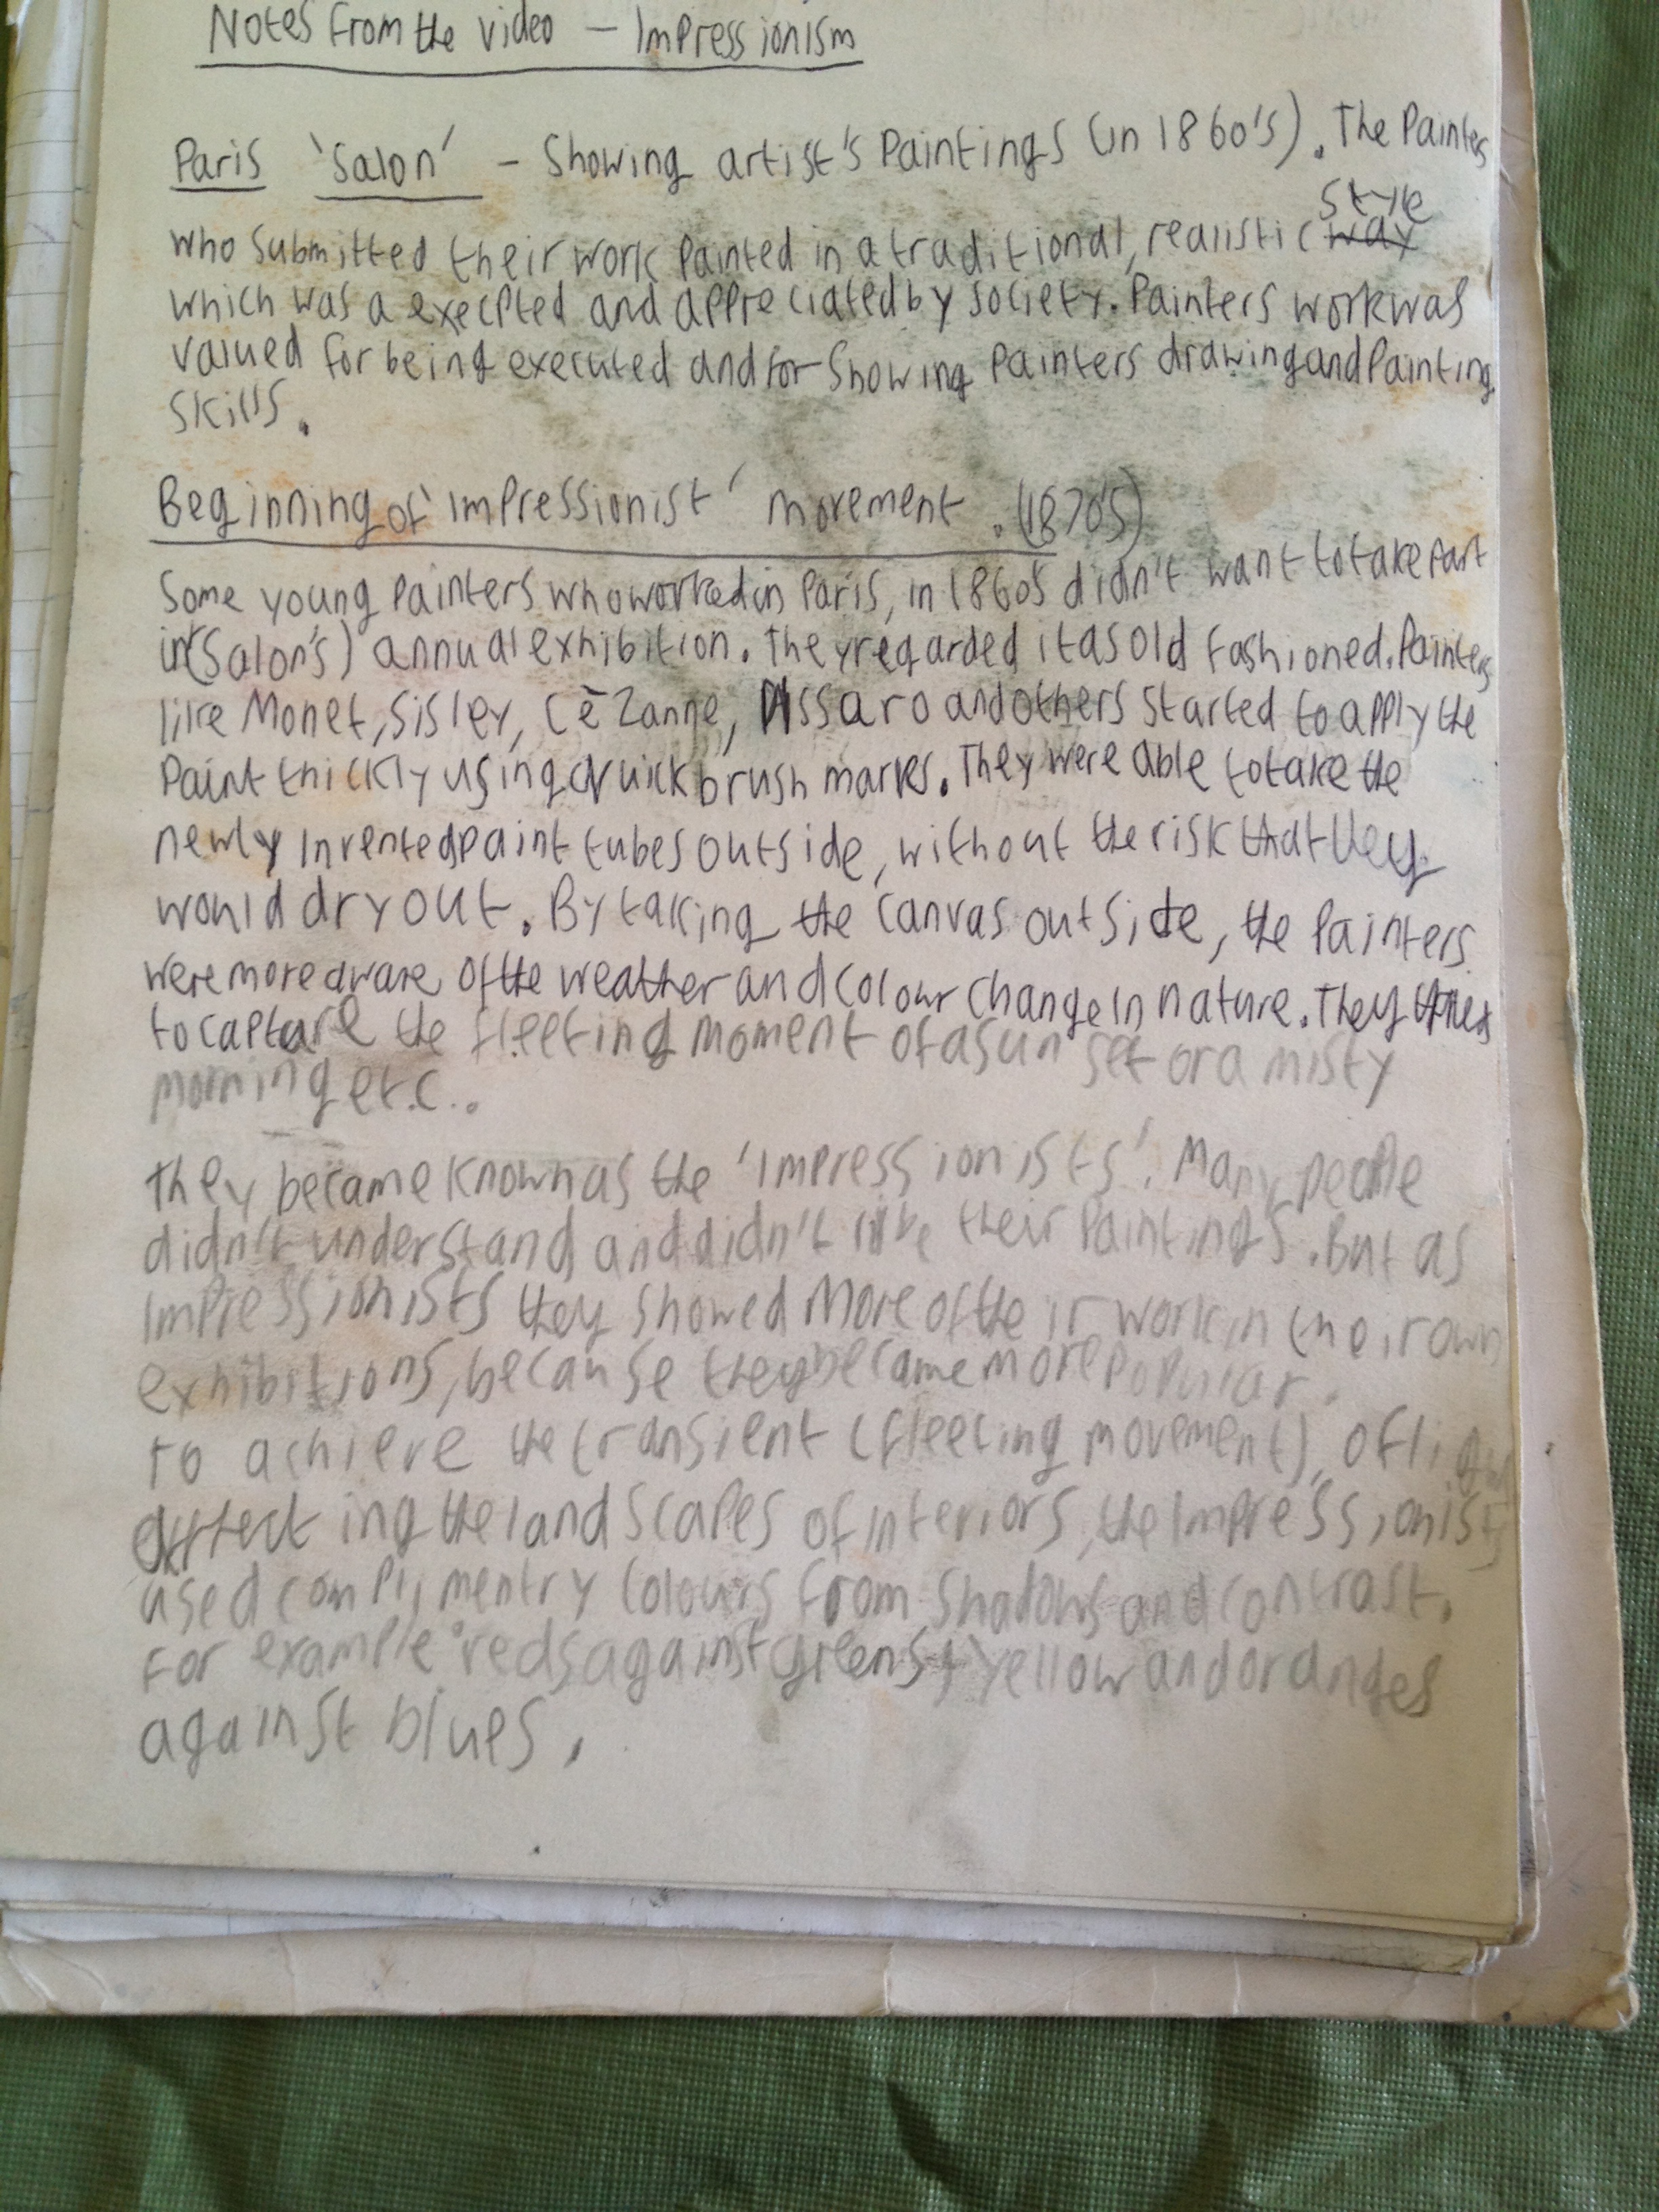 Notes from the video – Impressionism
Paris 'Salon' – Showing artist's Paintings (in 1860's). The Painters
style
who submitted their work painted in a traditional, realistic way
which was a execpted and appreciated by society. Painters work was
valued for being executed and for showing Painters drawing and Painting
skills.
Beginning of 'impressionist' movement. (1870's)
Some young Painters who worked in Paris, in 1860's didn't want to take part
in (Salon's) annual exhibition. They regarded it as old fashioned. Painters
like Monet, Sisley, Cèzanne, Pissaro and others started to apply the
Paint thickly using quick brush marks. They were able to take the
newly invented paint tubes outside, without the risk that they
would dry out. By taking the canvas outside, the Painters
were more aware of the weather and colour change in nature. They tried
to capture the fleeting moment of a sun set or a misty
morning etc..
They became known as the 'Impressionists'. Many people
didn't understand and didn't like their Paintings. But as
Impressionists they showed more of their work in their own
exhibitions, because they became more popular.
To achieve the transient (fleeting movement), of light
effecting the landscapes of interiors, the Impressionists
used complimentry colours from shadows and contrast.
For example reds against greens, yellow and oranges
against blues.